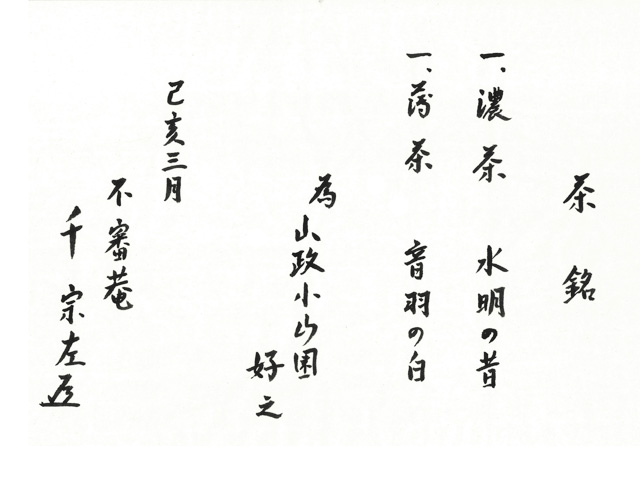 茶銘
一、濃茶 水明の昔
一、薄茶 音羽の白
為山政小山園
好之
己亥三月
不審菴
千宗左